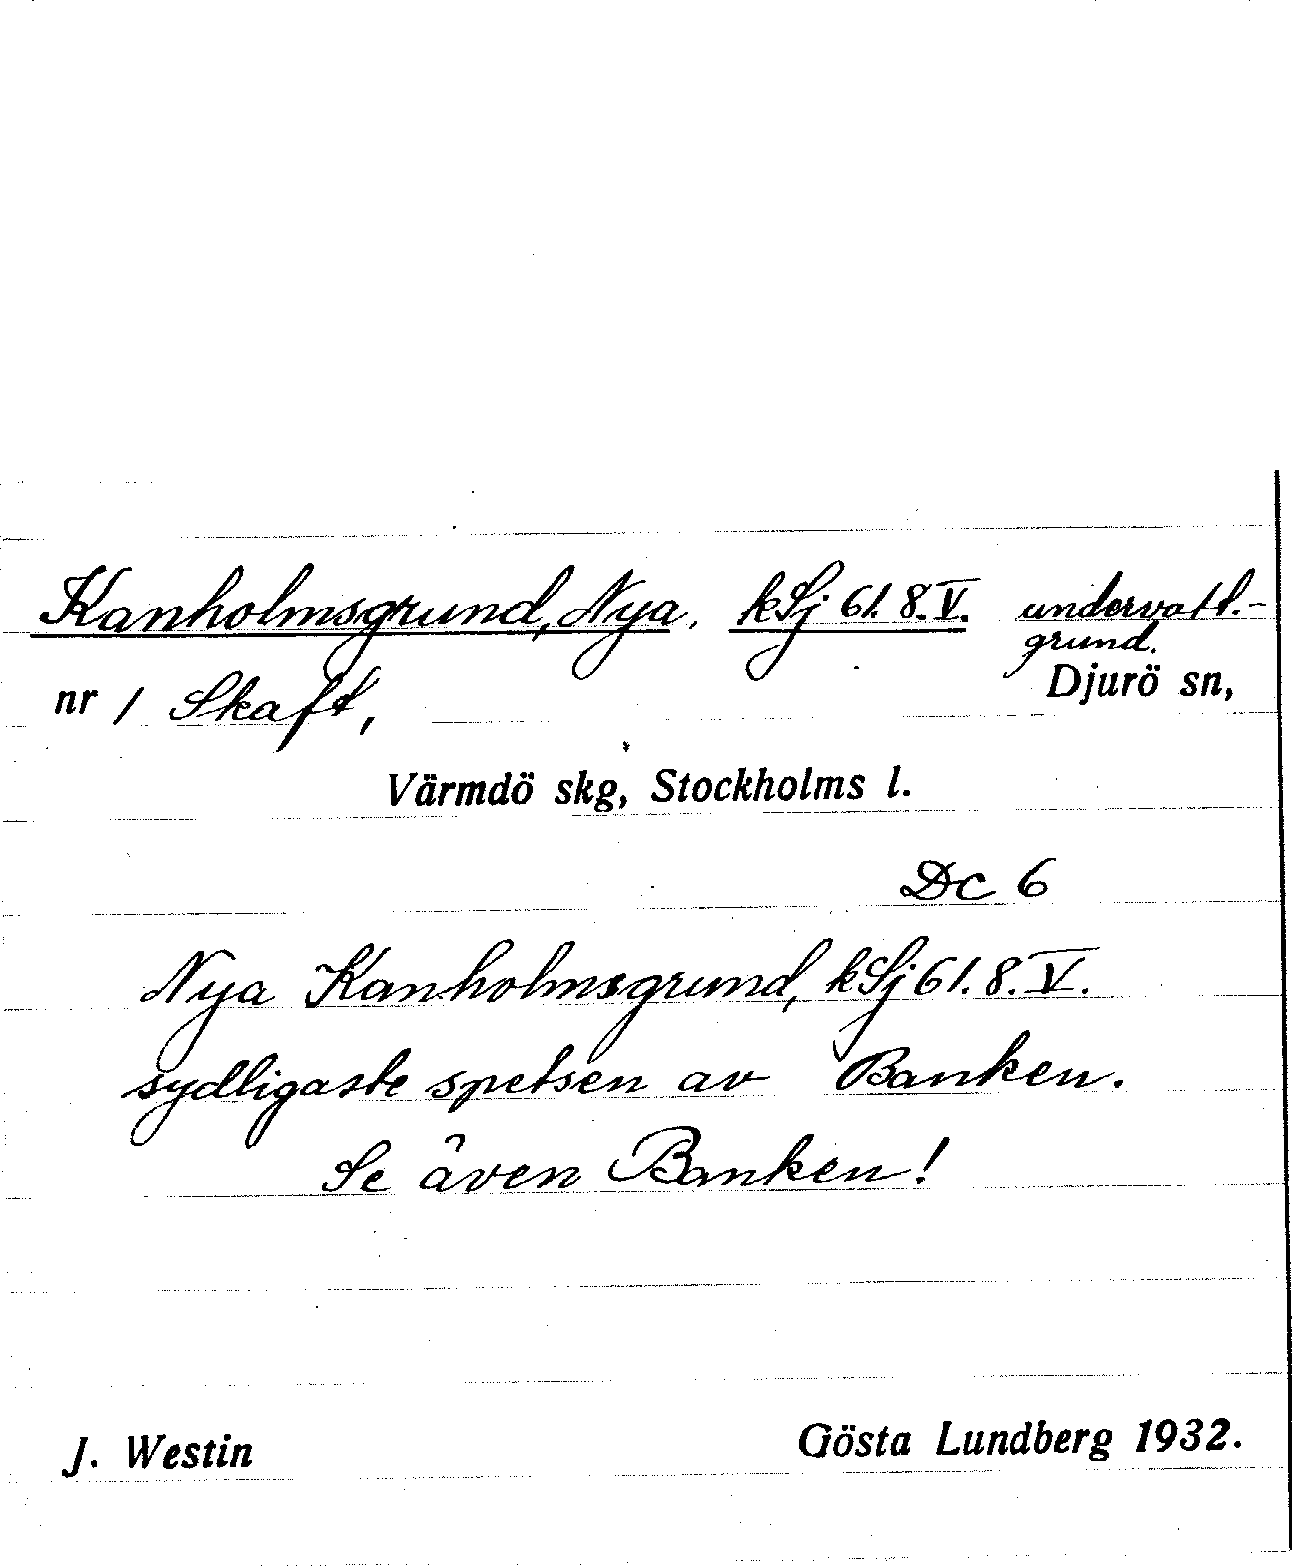 Kanholmsgrund, Nya. kSj 61. 8. V. undervatt.-
grund.
nr 1 Skaft, Djurö sn,
Värmdö skg, Stockholms l.
Dc 6
Nya Kanholmsgrund, kSj 61. 8. V.
sydligaste spetsen av Banken.
Se även Banken!
J. Westin Gösta Lundberg 1932.